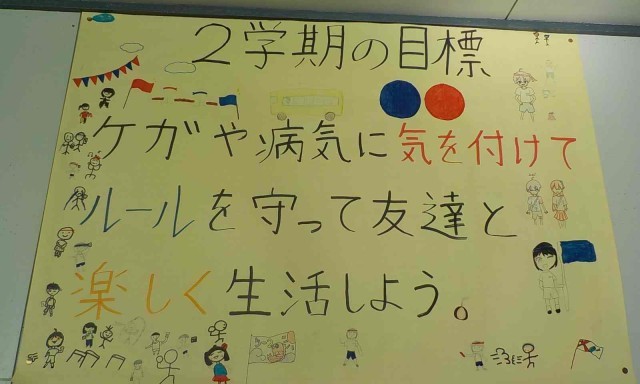 2学期の目標
ケガや病気に気を付けて
ルールを守って友達と
楽しく生活しよう。